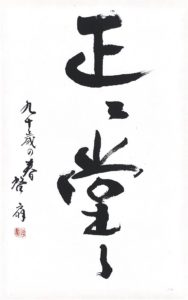 正々堂々
九十歳の春